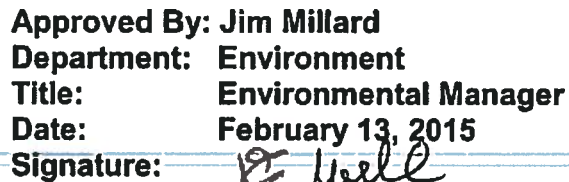 Approved By: Jim Millard
Department: Environment
Title: Environmental Manager
Date: February 13, 2015
Signature: